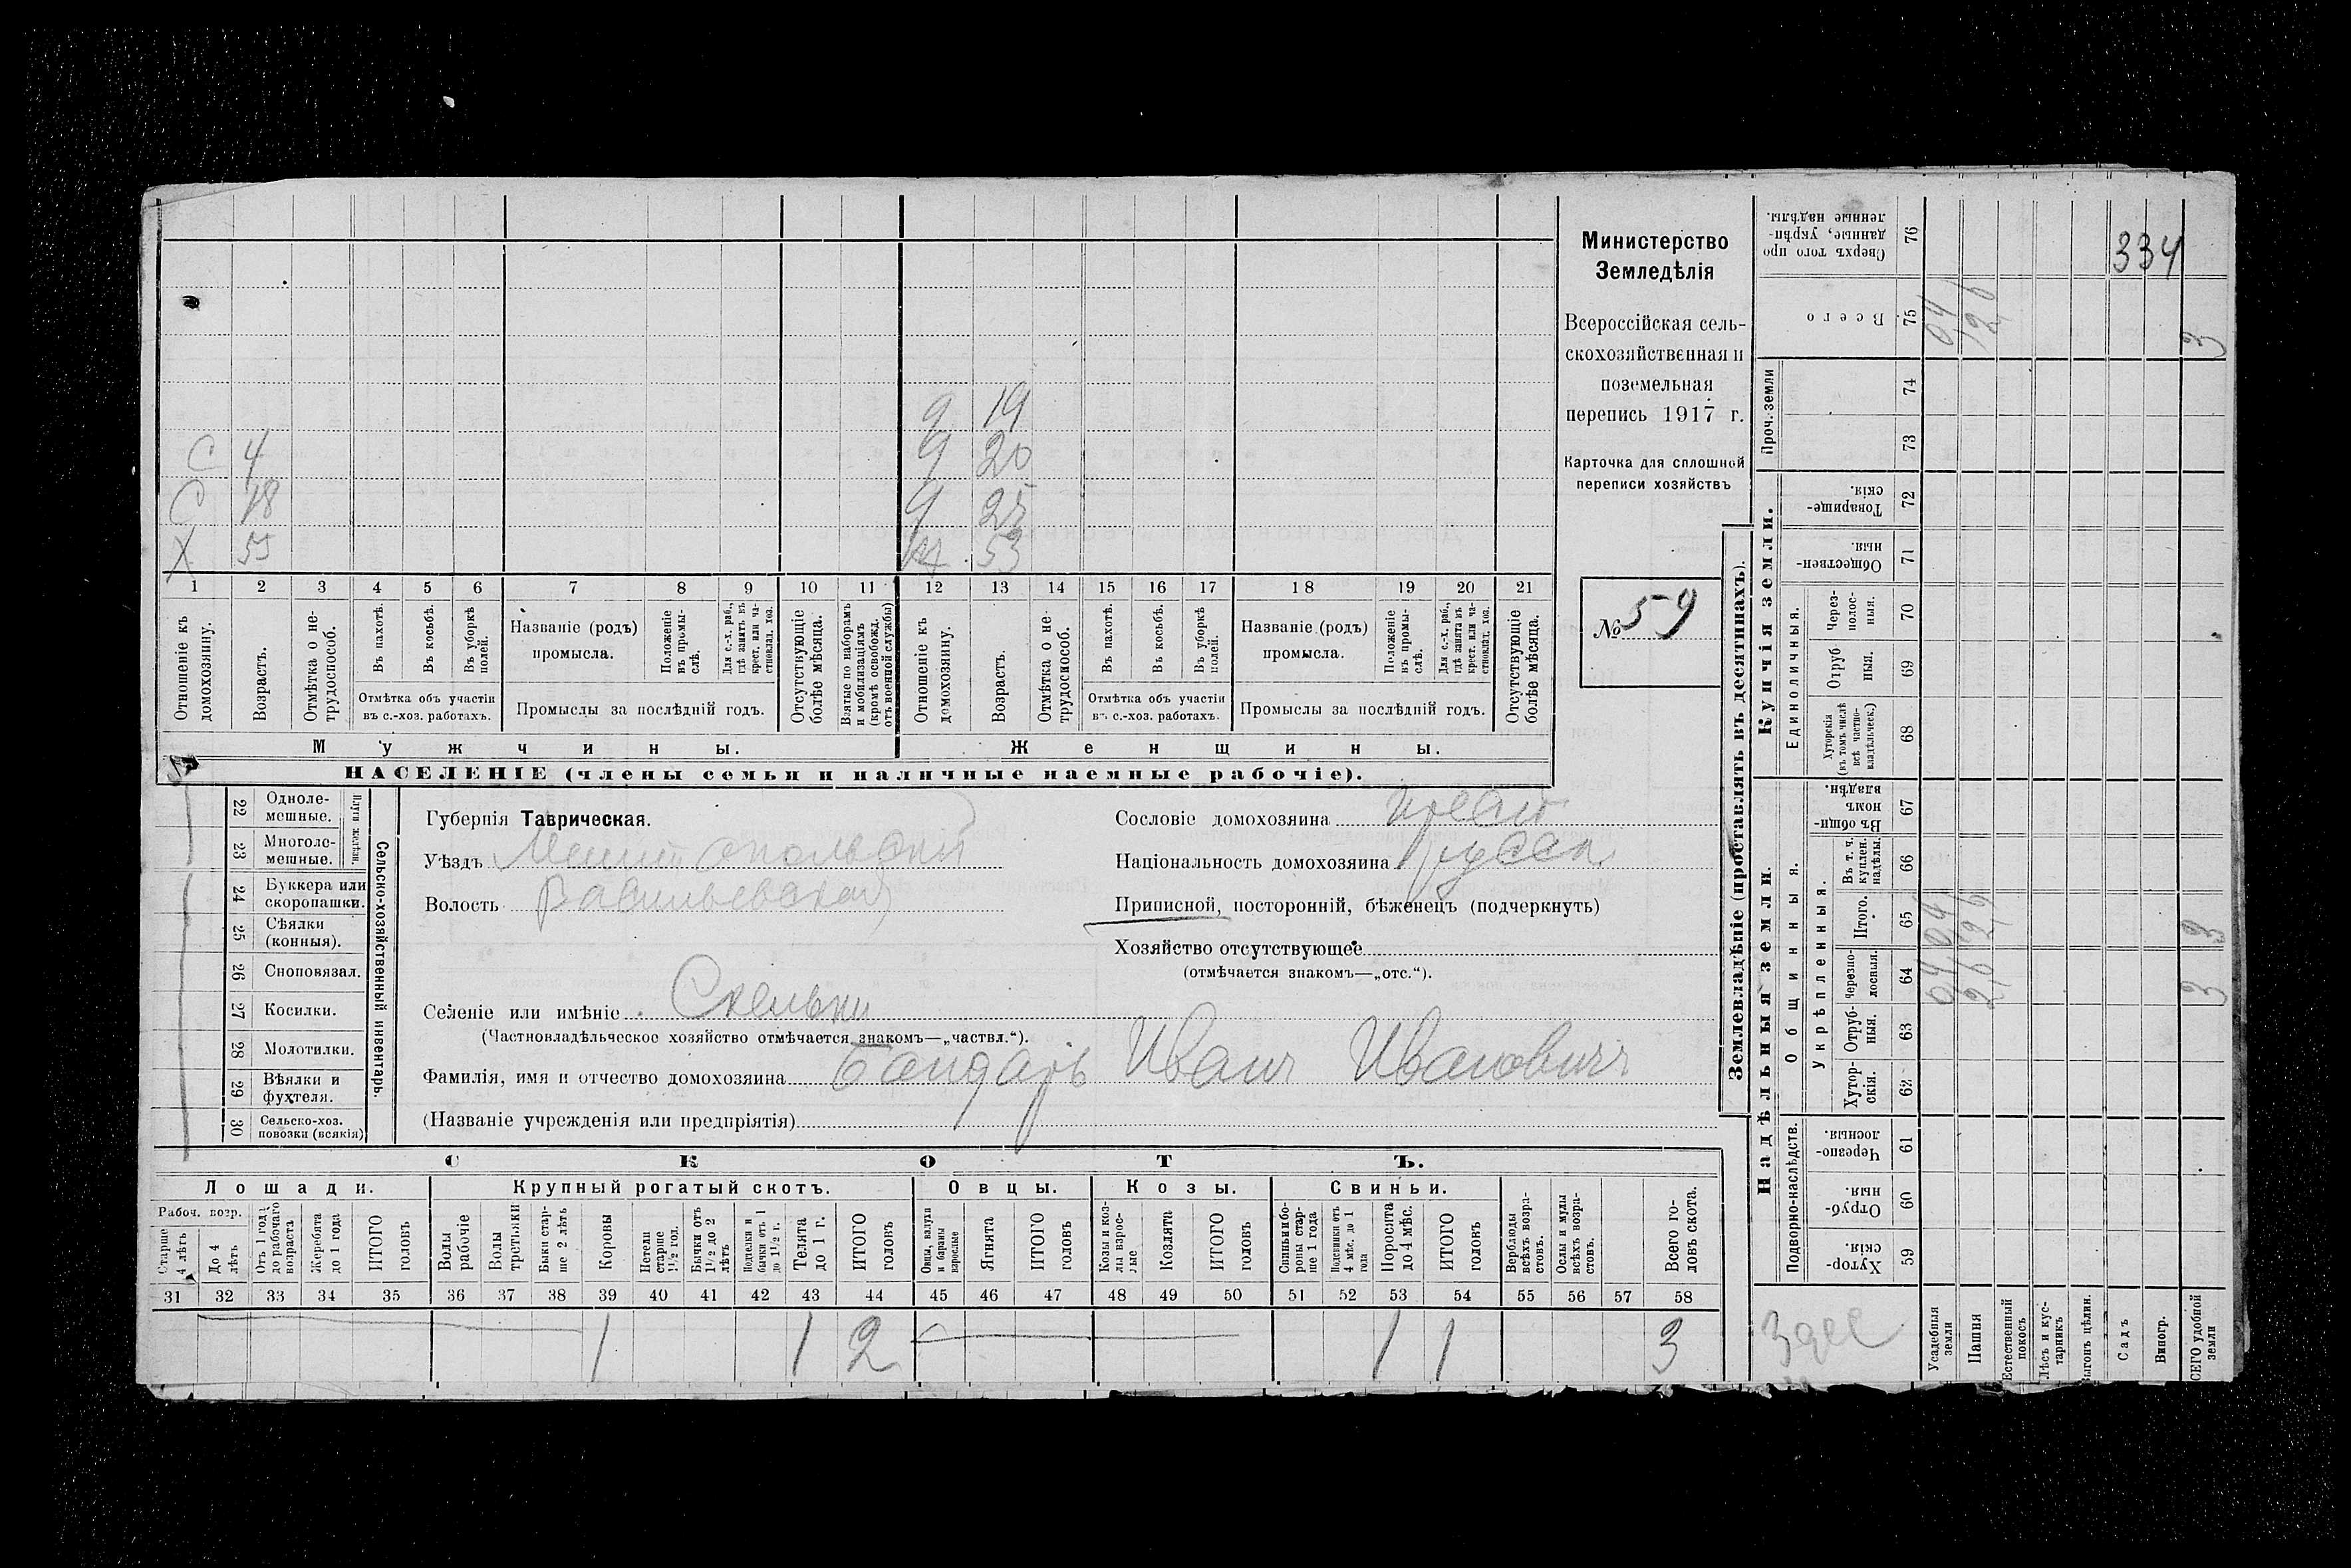 Министерство
Земледѣлія
Всероссійская сель-
скохозяйственная и
поземельная
перепись 1917 г.
Карточка для сплошной
переписи хозяйствъ
№ 59
334
9 19
С 4 9 20
С 18 25
Х 55 53
1 2 3 4 5 6 7 8 9 10 11 12 13 14 15 16 17 18 19 20 21
Отношеніе къ домохозяину.
Возрастъ.
Отмѣтка о не-трудоспособ.
Въ пахотѣ.
Въ косьбѣ.
Въ уборкѣ полей.
Отмѣтка объ участіи
въ с.-хоз. работахъ.
Названіе (родъ)
промысла.
Положеніе въ промы-слѣ.
Для с.-х. раб., гдѣ занятъ въ крест. или ча-стновлад. хоз.
Промыслы за послѣдній годъ.
Отсутствующіе болѣе мѣсяца.
Взятые по наборамъ и мобилизаціямъ (кромѣ освобожд. отъ военной службы)
Отношеніе къ домохозяину.
Возрастъ.
Отмѣтка о не-трудоспособ.
Въ пахотѣ.
Въ косьбѣ.
Въ уборкѣ полей.
Отмѣтка объ участіи
въ с.-хоз. работахъ.
Названіе (родъ)
промысла.
Положеніе въ промы-слѣ.
Для с.-х. раб., гдѣ занята въ крест. или ча-стновлад. хоз.
Промыслы за послѣдній годъ.
Отсутствующіе болѣе мѣсяца.
Мужчины. Женщины.
НАСЕЛЕНІЕ (члены семьи и наличные наемные рабочіе).
Сельско-хозяйственный инвентарь.
Плуги желѣзн.
22 Одноле-
мешные.
23 Многоле-
мешные.
24 Буккера или
скоропашки.
25 Сѣялки
(конныя).
26 Сноповязал.
27 Косилки.
28 Молотилки.
29 Вѣялки и
фухтеля.
30 Сельско-хоз.
повозки (всякія)
Губернія Таврическая.
Уѣздъ Мелитопольскій
Волость Васильевская
Селеніе или имѣніе Скельки
(Частновладѣльческое хозяйство отмѣчается знакомъ—„частвл.“).
Фамилія, имя и отчество домохозяина Бондарь Иванъ Ивановичъ
(Названіе учрежденія или предпріятія)
Сословіе домохозяина крест
Національность домохозяина русск
Приписной, посторонній, бѣженецъ (подчеркнуть)
Хозяйство отсутствующее
(отмѣчается знакомъ—„отс.“).
СКОТЪ.
Лошади. Крупный рогатый скотъ. Овцы. Козы. Свиньи.
Рабоч. возр.
Старше 4 лѣтъ
До 4 лѣтъ
Отъ 1 года до рабочаго возраста
Жеребята до 1 года
ИТОГО головъ
Волы рабочіе
Волы третьяки
Быки стар-ше 2 лѣтъ
Коровы
Нетели старше 1½ год.
Бычки отъ 1½ до 2 лѣтъ
Подтелки и бычки отъ 1 до 1½ г.
Телята до 1 г.
ИТОГО головъ
Овцы, валухи и бараны взрослые
Ягнята
ИТОГО головъ
Козы и коз-лы взрос-лые
Козлята
ИТОГО головъ
Свиньи и бо-ровы стар-ше 1 года
Подсвинки отъ 4 мѣс. до 1 года
Поросята до 4 мѣс.
ИТОГО головъ
Верблюды всѣхъ возра-стовъ.
Ослы и мулы всѣхъ возра-стовъ.
Всего го-ловъ скота.
31 32 33 34 35 36 37 38 39 40 41 42 43 44 45 46 47 48 49 50 51 52 53 54 55 56 57 58
1 1 2 1 1 3
Землевладѣніе (проставлять въ десятинахъ).
Надѣльныя земли.
Купчія земли.
Проч. земли
Подворно-наслѣдств.
Общинныя.
Укрѣпленныя.
Единоличныя.
Хутор-скія. 59
Отруб-ныя. 60
Черезпо-лосныя. 61
Хутор-скія. 62
Отруб-ныя. 63
Черезпо-лосныя. 64
Итого. 65
Въ т. ч. куплен. надѣлы. 66
Въ общин-номъ владѣн. 67
Хуторскія (въ томъ числѣ всѣ частно-владѣльческ.) 68
Отруб-ныя. 69
Через-полос-ныя. 70
Обществен-ныя. 71
Товарище-скія. 72
73
74
Всего 75
Сверхъ того про-данные, укрѣп-ленные надѣлы. 76
Усадебныя земли 04 04 04
Пашня 26 26 26
Естественный покосъ
Лѣсъ и кус-тарникъ
Выгонъ цѣлин.
Садъ
Виногр.
ВСЕГО удобной земли 3 3 3
Здес